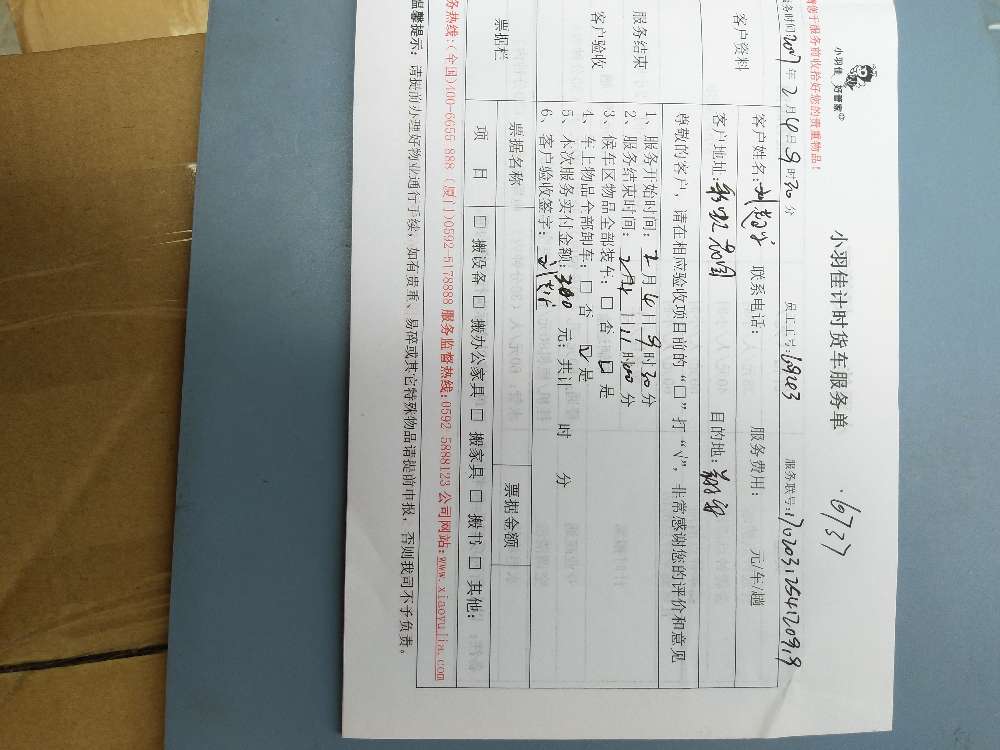 小羽佳 好管家
小羽佳计时货车服务单
6737
请您于服务前收拾好您的贵重物品！
服务时间2017年2月4日9时30分 员工工号: 服务联号:1702031254120919
客户资料
客户姓名: 联系电话: 服务费用: 元/车/趟
客户地址: 花园 目的地:
尊敬的客户，请在相应验收项目前的“口”打“√”，非常感谢您的评价和意见
服务结束
客户验收
1、服务开始时间:2月4日9时30分
2、服务结束时间:2月4日11时00分
3、候车区物品全部装车:□否 □是
4、车上物品全部卸车:□否 ☑是
5、本次服务实付金额:300元;共计 时 分
6、客户验收签字:
票据栏
票据名称 票据金额
项目 □搬设备□搬办公家具□搬家具□搬书□其他:
服务热线:(全国)400-6655 888 (厦门)0592-5178888 服务监督热线:0592 5888123 公司网站:www.xiaoyujia.com
温馨提示: 请提前办理好物业通行手续，如有贵重、易碎或其它特殊物品请提前申报，否则我司不予负责。